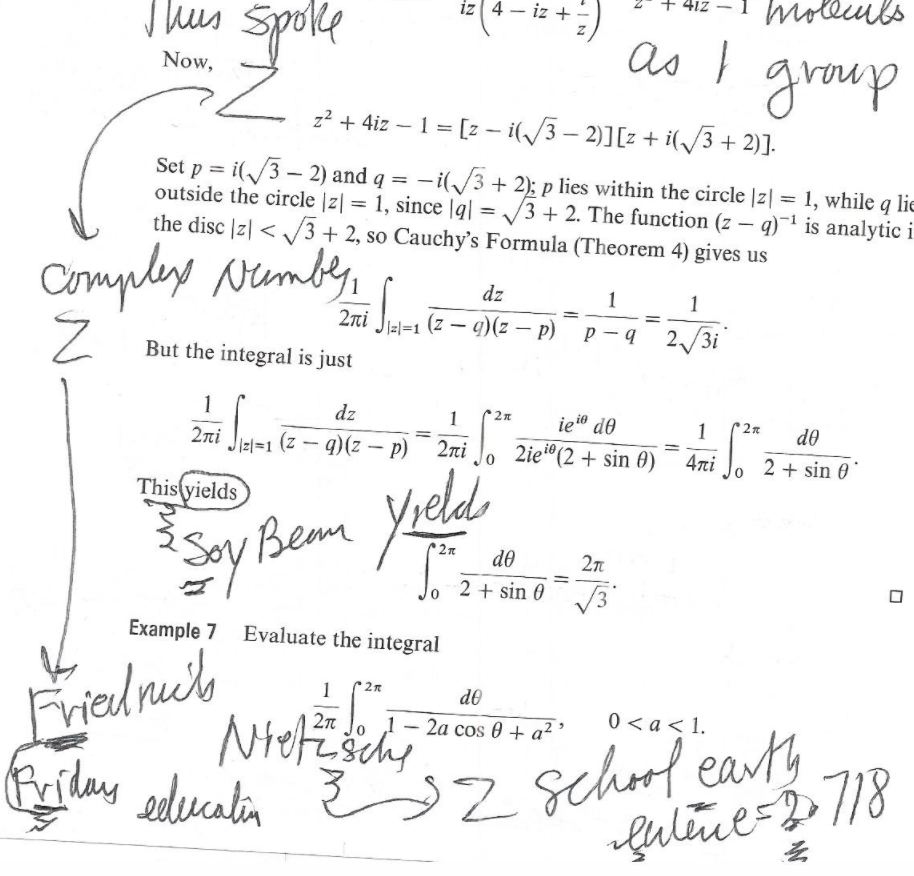 Thus spoke
iz(4 − iz + i/z) z² + 4iz − 1 molecules
as 1 group
Now,
Z
z² + 4iz − 1 = [z − i(√3 − 2)][z + i(√3 + 2)].
Set p = i(√3 − 2) and q = −i(√3 + 2); p lies within the circle |z| = 1, while q lie
outside the circle |z| = 1, since |q| = √3 + 2. The function (z − q)⁻¹ is analytic i
the disc |z| < √3 + 2, so Cauchy's Formula (Theorem 4) gives us
Complex Number
1/2πi ∫|z|=1 dz/(z − q)(z − p) = 1/p − q = 1/2√3i.
Z
But the integral is just
1/2πi ∫|z|=1 dz/(z − q)(z − p) = 1/2πi ∫₀^2π ie^iθ dθ/2ie^iθ(2 + sin θ) = 1/4πi ∫₀^2π dθ/2 + sin θ.
This yields
Soy Bean yields
∫₀^2π dθ/2 + sin θ = 2π/√3.
□
Example 7 Evaluate the integral
1/2π ∫₀^2π dθ/1 − 2a cos θ + a², 0 < a < 1.
Nietzsche
Friday Z school earth
= 2.718